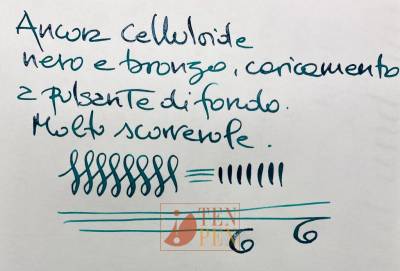 Ancora celluloide
nero e bronzo, caricamento
a pulsante di fondo.
Molto scorrevole.
TEN
PEN